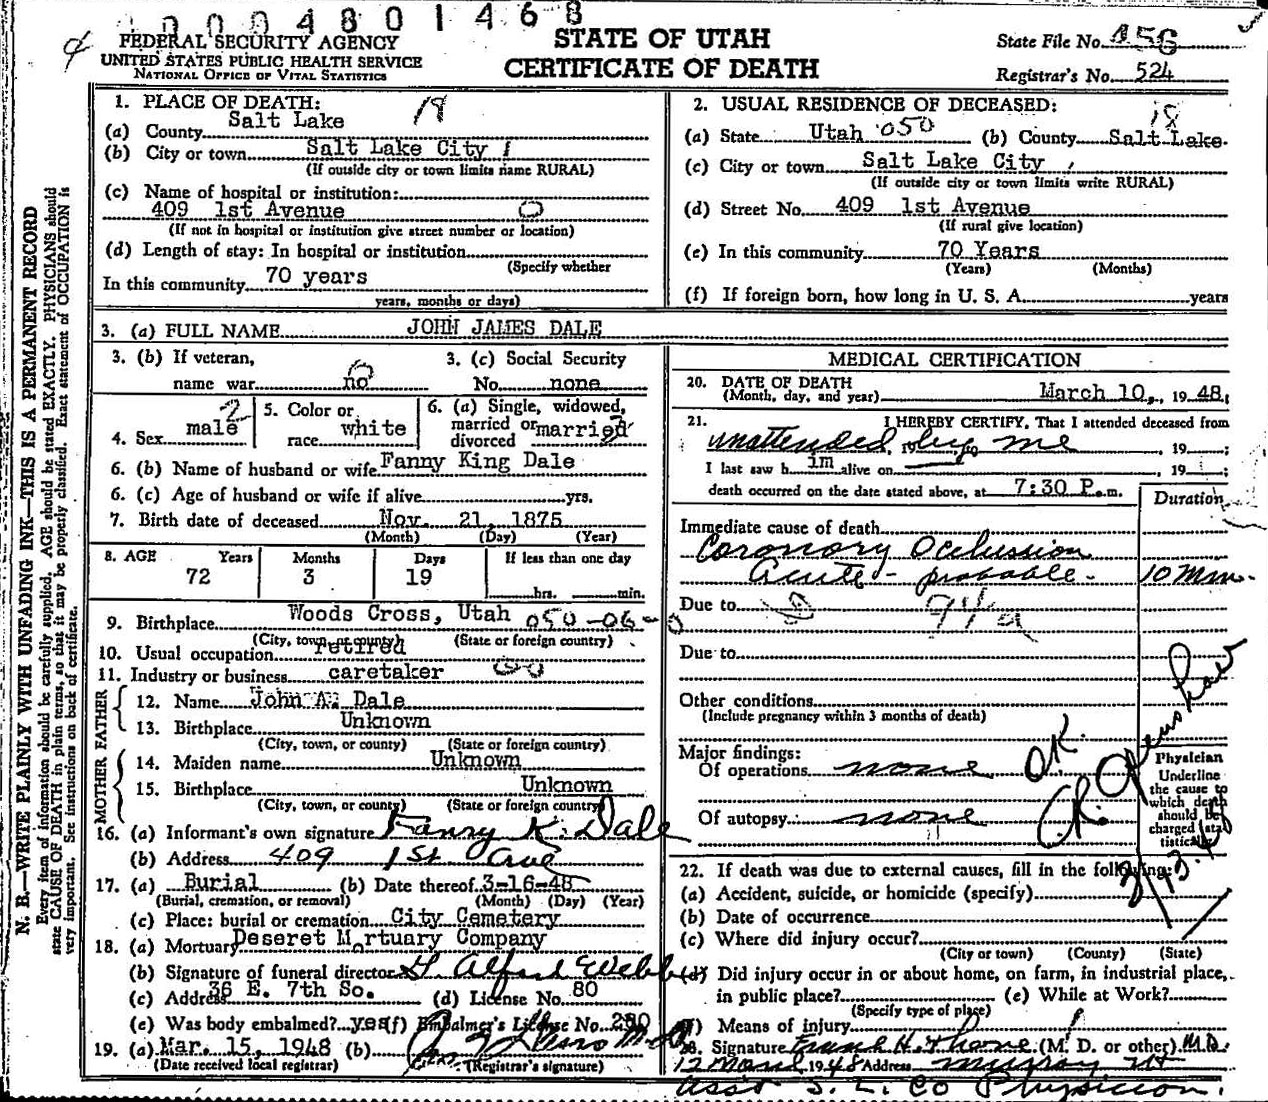 0004801468
FEDERAL SECURITY AGENCY
UNITED STATES PUBLIC HEALTH SERVICE
NATIONAL OFFICE OF VITAL STATISTICS
STATE OF UTAH
CERTIFICATE OF DEATH
State File No. 456
Registrar's No. 524
N. B.—WRITE PLAINLY WITH UNFADING INK—THIS IS A PERMANENT RECORD
Every item of information should be carefully supplied. AGE should be stated EXACTLY. PHYSICIANS should
state CAUSE OF DEATH in plain terms, so that it may be properly classified. Exact statement of OCCUPATION is
very important. See instructions on back of certificate.
1. PLACE OF DEATH:
(a) County Salt Lake 18
(b) City or town Salt Lake City 1
(If outside city or town limits name RURAL)
(c) Name of hospital or institution:
409 1st Avenue 0
(If not in hospital or institution give street number or location)
(d) Length of stay: In hospital or institution
(Specify whether
In this community 70 years
years, months or days)
2. USUAL RESIDENCE OF DECEASED:
(a) State Utah 050 (b) County Salt Lake 18
(c) City or town Salt Lake City
(If outside city or town limits write RURAL)
(d) Street No. 409 1st Avenue
(If rural give location)
(e) In this community 70 Years
(Years) (Months)
(f) If foreign born, how long in U. S. A. years
3. (a) FULL NAME JOHN JAMES DALE
3. (b) If veteran,
name war no
3. (c) Social Security
No. none
4. Sex male 2
5. Color or
race white
6. (a) Single, widowed,
married or
divorced married
6. (b) Name of husband or wife Fanny King Dale
6. (c) Age of husband or wife if alive yrs.
7. Birth date of deceased Nov. 21, 1875
(Month) (Day) (Year)
8. AGE Years Months Days If less than one day
72 3 19 hrs. min.
9. Birthplace Woods Cross, Utah 050-06-0
(City, town, or county) (State or foreign country)
10. Usual occupation retired
11. Industry or business caretaker
FATHER
12. Name John A. Dale
13. Birthplace Unknown
(City, town, or county) (State or foreign country)
MOTHER
14. Maiden name Unknown
15. Birthplace Unknown
(City, town, or county) (State or foreign country)
16. (a) Informant's own signature Fanny K. Dale
(b) Address 409 1st Ave
17. (a) Burial (b) Date thereof 3-16-48
(Burial, cremation, or removal) (Month) (Day) (Year)
(c) Place: burial or cremation City Cemetery
18. (a) Mortuary Deseret Mortuary Company
(b) Signature of funeral director Alfred Webb
(c) Address 36 E. 7th So. (d) License No. 80
(e) Was body embalmed? yes (f) Embalmer's License No. 280
19. (a) Mar. 15, 1948 (b)
(Date received local registrar) (Registrar's signature)
MEDICAL CERTIFICATION
20. DATE OF DEATH
(Month, day, and year) March 10, 1948;
21. I HEREBY CERTIFY, That I attended deceased from
unattended by me, 19 ;
I last saw him alive on , 19 ;
death occurred on the date stated above, at 7:30 P.m.
Duration
Immediate cause of death
Coronary Occlussion
acute - probable. 10 Min.
Due to 94a
Due to
Other conditions
(Include pregnancy within 3 months of death)
Major findings:
Of operations none
Of autopsy none
OK.
3/13/48
Physician
Underline
the cause to
which death
should be
charged sta-
tistically.
22. If death was due to external causes, fill in the following:
(a) Accident, suicide, or homicide (specify)
(b) Date of occurrence
(c) Where did injury occur?
(City or town) (County) (State)
(d) Did injury occur in or about home, on farm, in industrial place,
in public place? (e) While at Work?
(Specify type of place)
(f) Means of injury
23. Signature Frank H. Thone (M. D. or other) M.D.
12 March 1948 Address Murray Ut
Asst S. L. Co Physician.